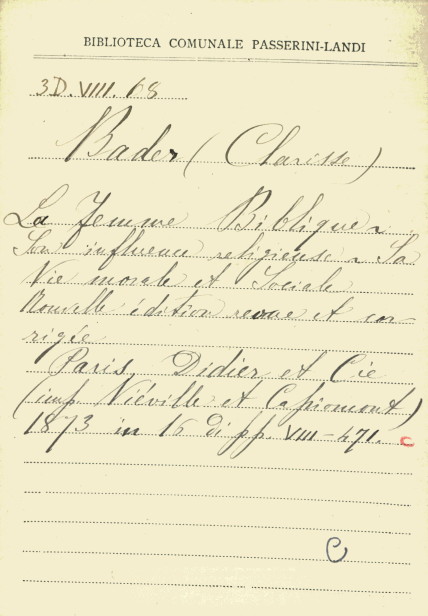 BIBLIOTECA COMUNALE PASSERINI-LANDI
3D. VIII. 68
Bader (Clarisse)
La Femme Biblique ~
Son influence religieuse ~ Sa
Vie morale et Sociale
Nouvelle édition revue et cor-
rigée
Paris, Didier et Cie
(imp. Viéville et Capiomont)
1873 in 16 di pp. VIII-471. C
C